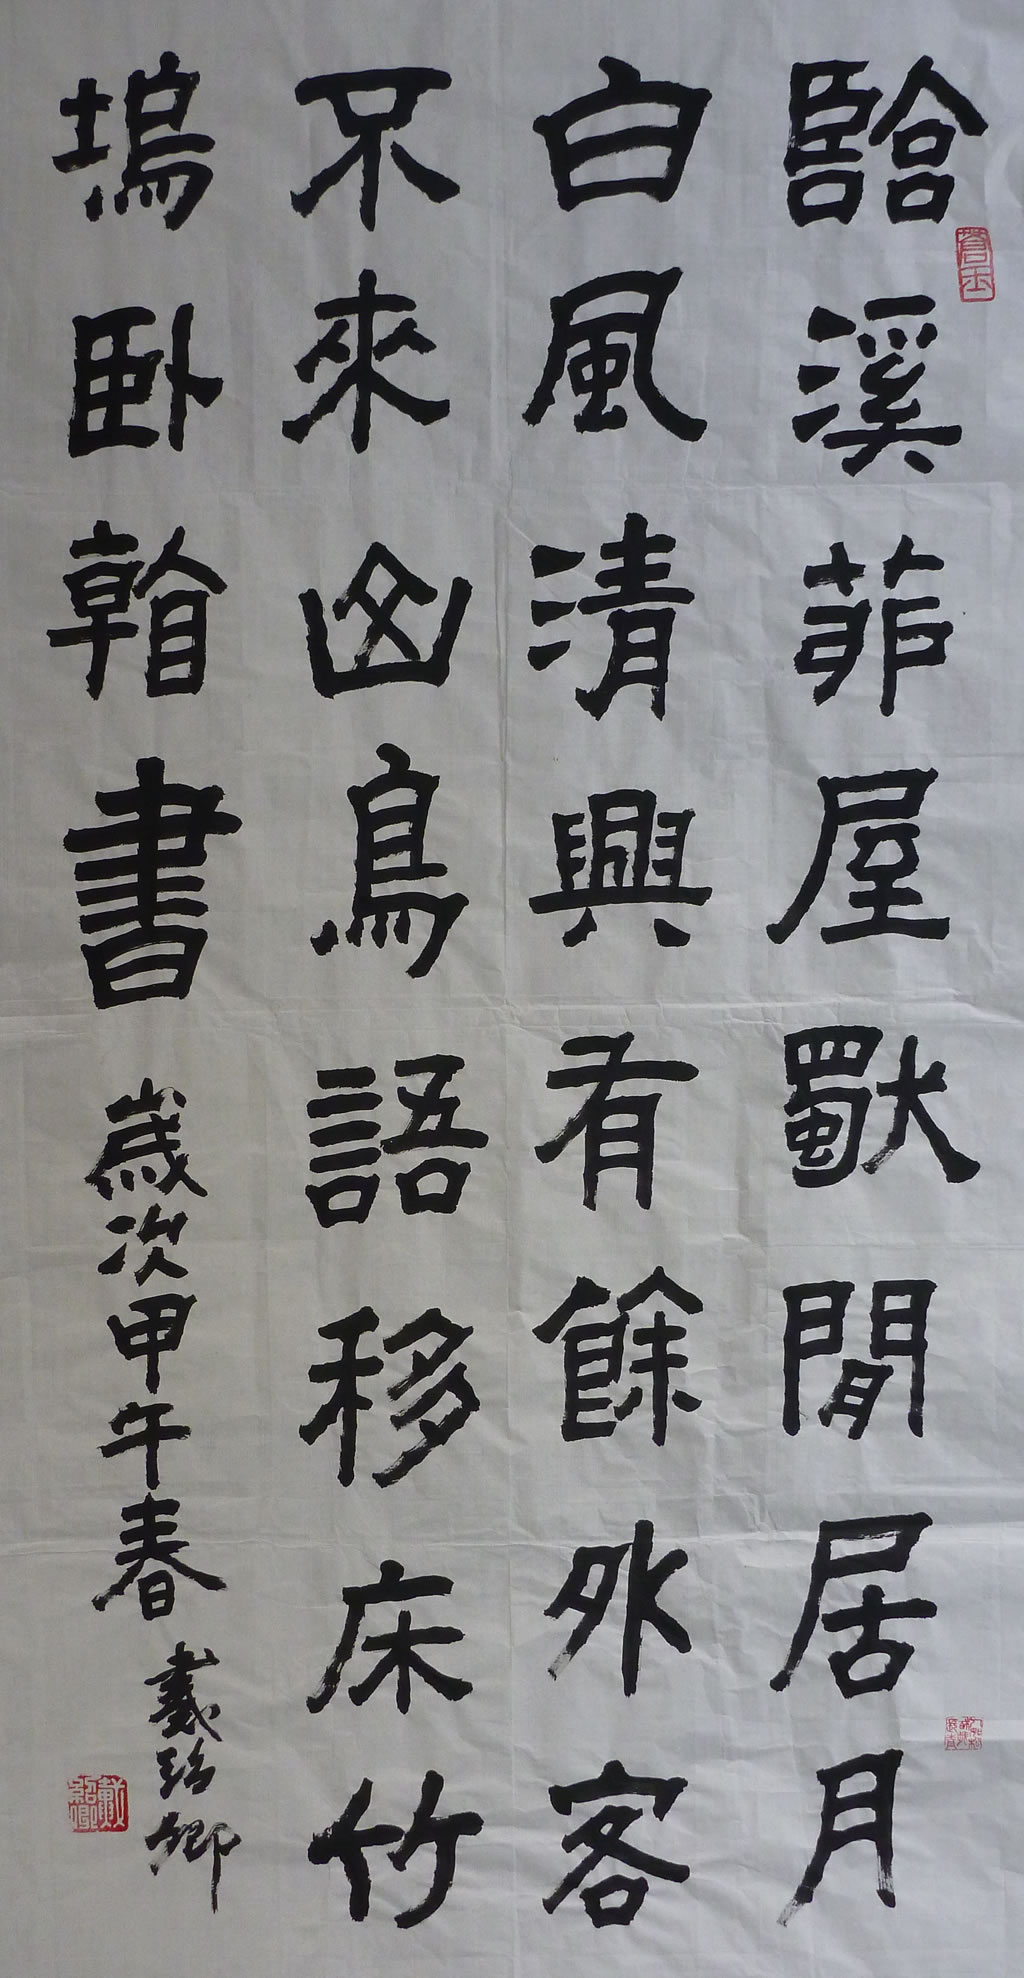 臨溪茆屋獨閒居月
白風清興有餘外客
不來山鳥語移床竹
塢卧看書 歲次甲午春 戴紹卿
戴紹卿